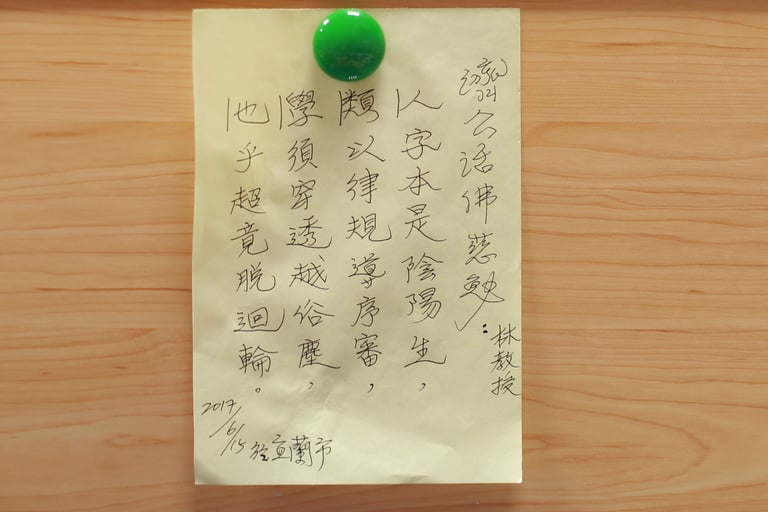 濟公活佛慈勉：
林教授
人字本是陰陽生，
類以律規導序審，
學須穿透越俗塵，
也乎超竟脫迴輪。
2017/6/15 於宜蘭市